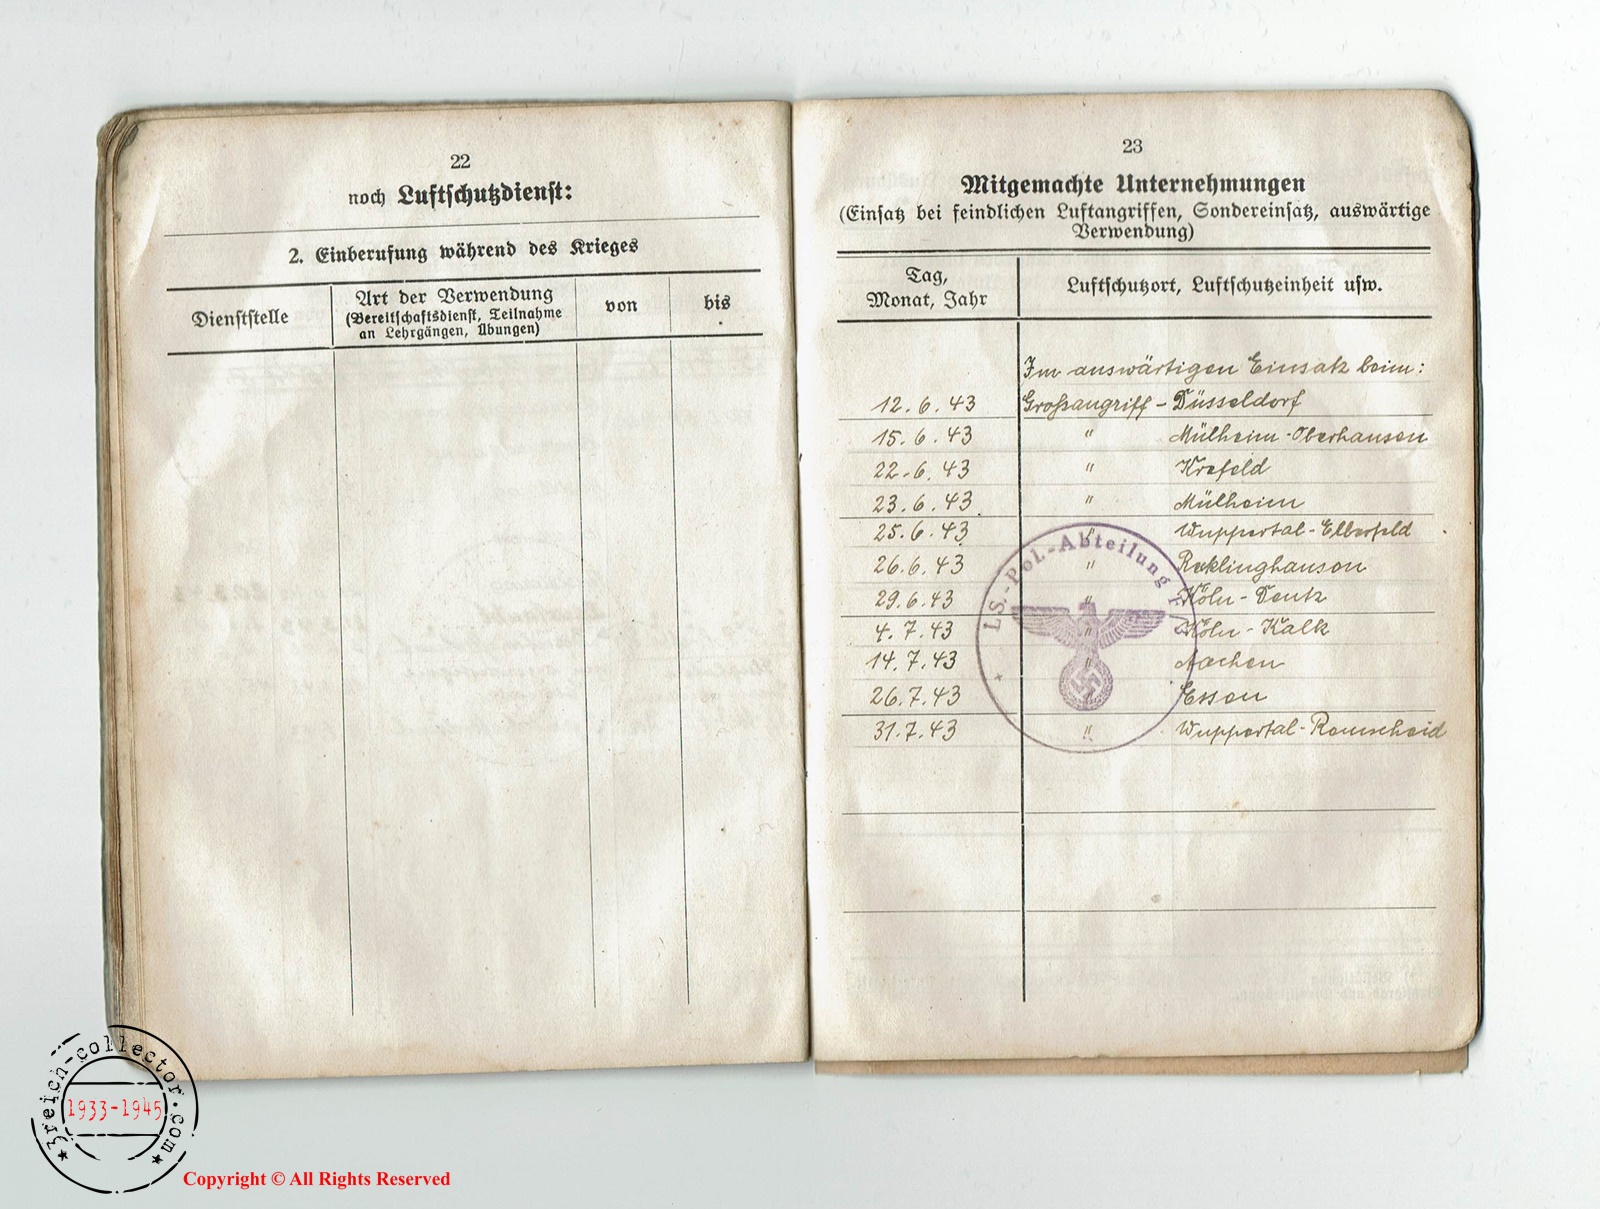 22
noch Luftschutzdienst:
2. Einberufung während des Krieges
Dienststelle
Art der Verwendung
(Bereitschaftsdienst, Teilnahme
an Lehrgängen, Übungen)
von
bis
23
Mitgemachte Unternehmungen
(Einsatz bei feindlichen Luftangriffen, Sondereinsatz, auswärtige
Verwendung)
Tag,
Monat, Jahr
Luftschutzort, Luftschutzeinheit usw.
Im auswärtigen Einsatz beim:
12.6.43 Großangriff - Düsseldorf
15.6.43 " Mülheim-Oberhausen
22.6.43 " Krefeld
23.6.43 " Mülheim
25.6.43 " Wuppertal-Elberfeld
26.6.43 " Reklinghausen
29.6.43 " Köln-Deutz
4.7.43 " Köln-Kalk
14.7.43 " Aachen
26.7.43 " Essen
31.7.43 " Wuppertal-Remscheid
LS.-Pol.-Abteilung
3reich-collector.com
1933-1945
Copyright © All Rights Reserved